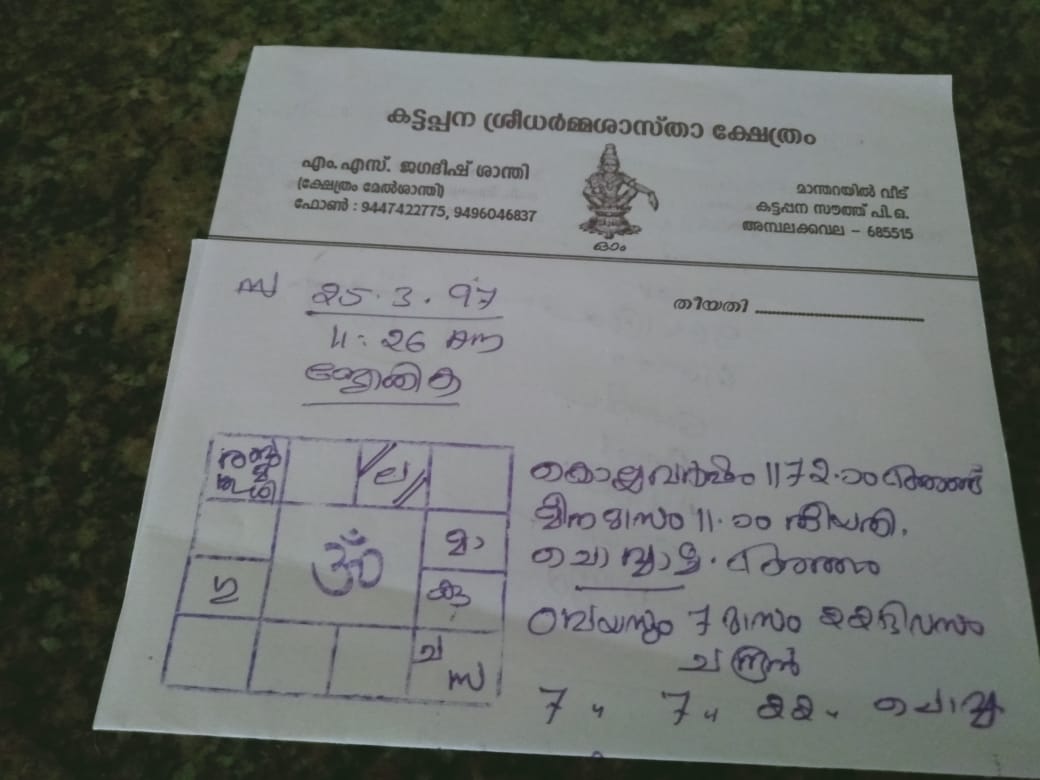 കട്ടപ്പന ശ്രീധർമ്മശാസ്താ ക്ഷേത്രം
എം.എസ്. ജഗദീഷ് ശാന്തി
(ക്ഷേത്രം മേൽശാന്തി)
ഫോൺ : 9447422775, 9496046837
മാന്തറയിൽ വീട്
കട്ടപ്പന സൗത്ത് പി.ഒ.
അമ്പലക്കവല - 685515
ഓം
തീയതി
25.3.97
11:26
ല
ॐ
മാ
കു
ച
കൊല്ലവർഷം 1172-ാം
മീനമാസം 11-ാം തീയതി.
ചൊവ്വാഴ്ച.
0 വയസും 7 മാസം 22 ദിവസം
ചന്ദ്രൻ
7 " 7 " 22 " ചൊവ്വ